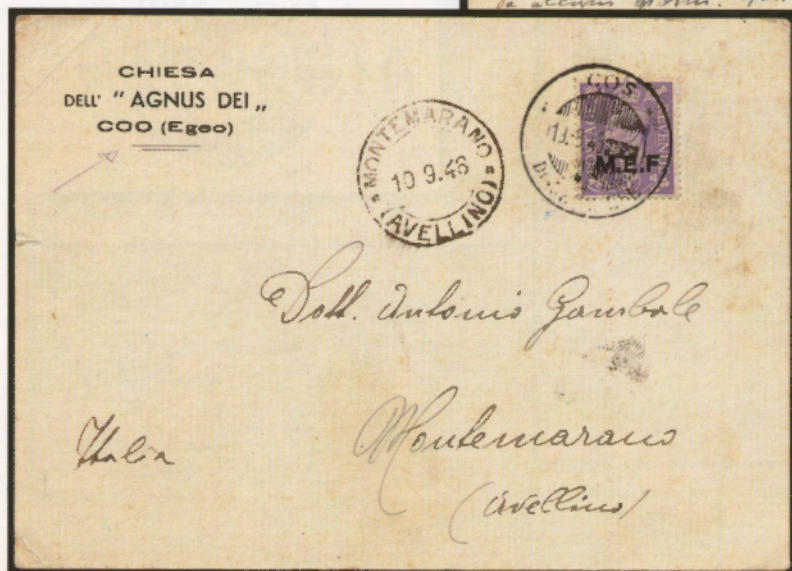 CHIESA
DELL' "AGNUS DEI„
COO (Egeo)
MONTEMARANO
10.9.46
(AVELLINO)
COS
M.E.F
Dott. Antonio Gambale
Montemarano
Italia
(Avellino)